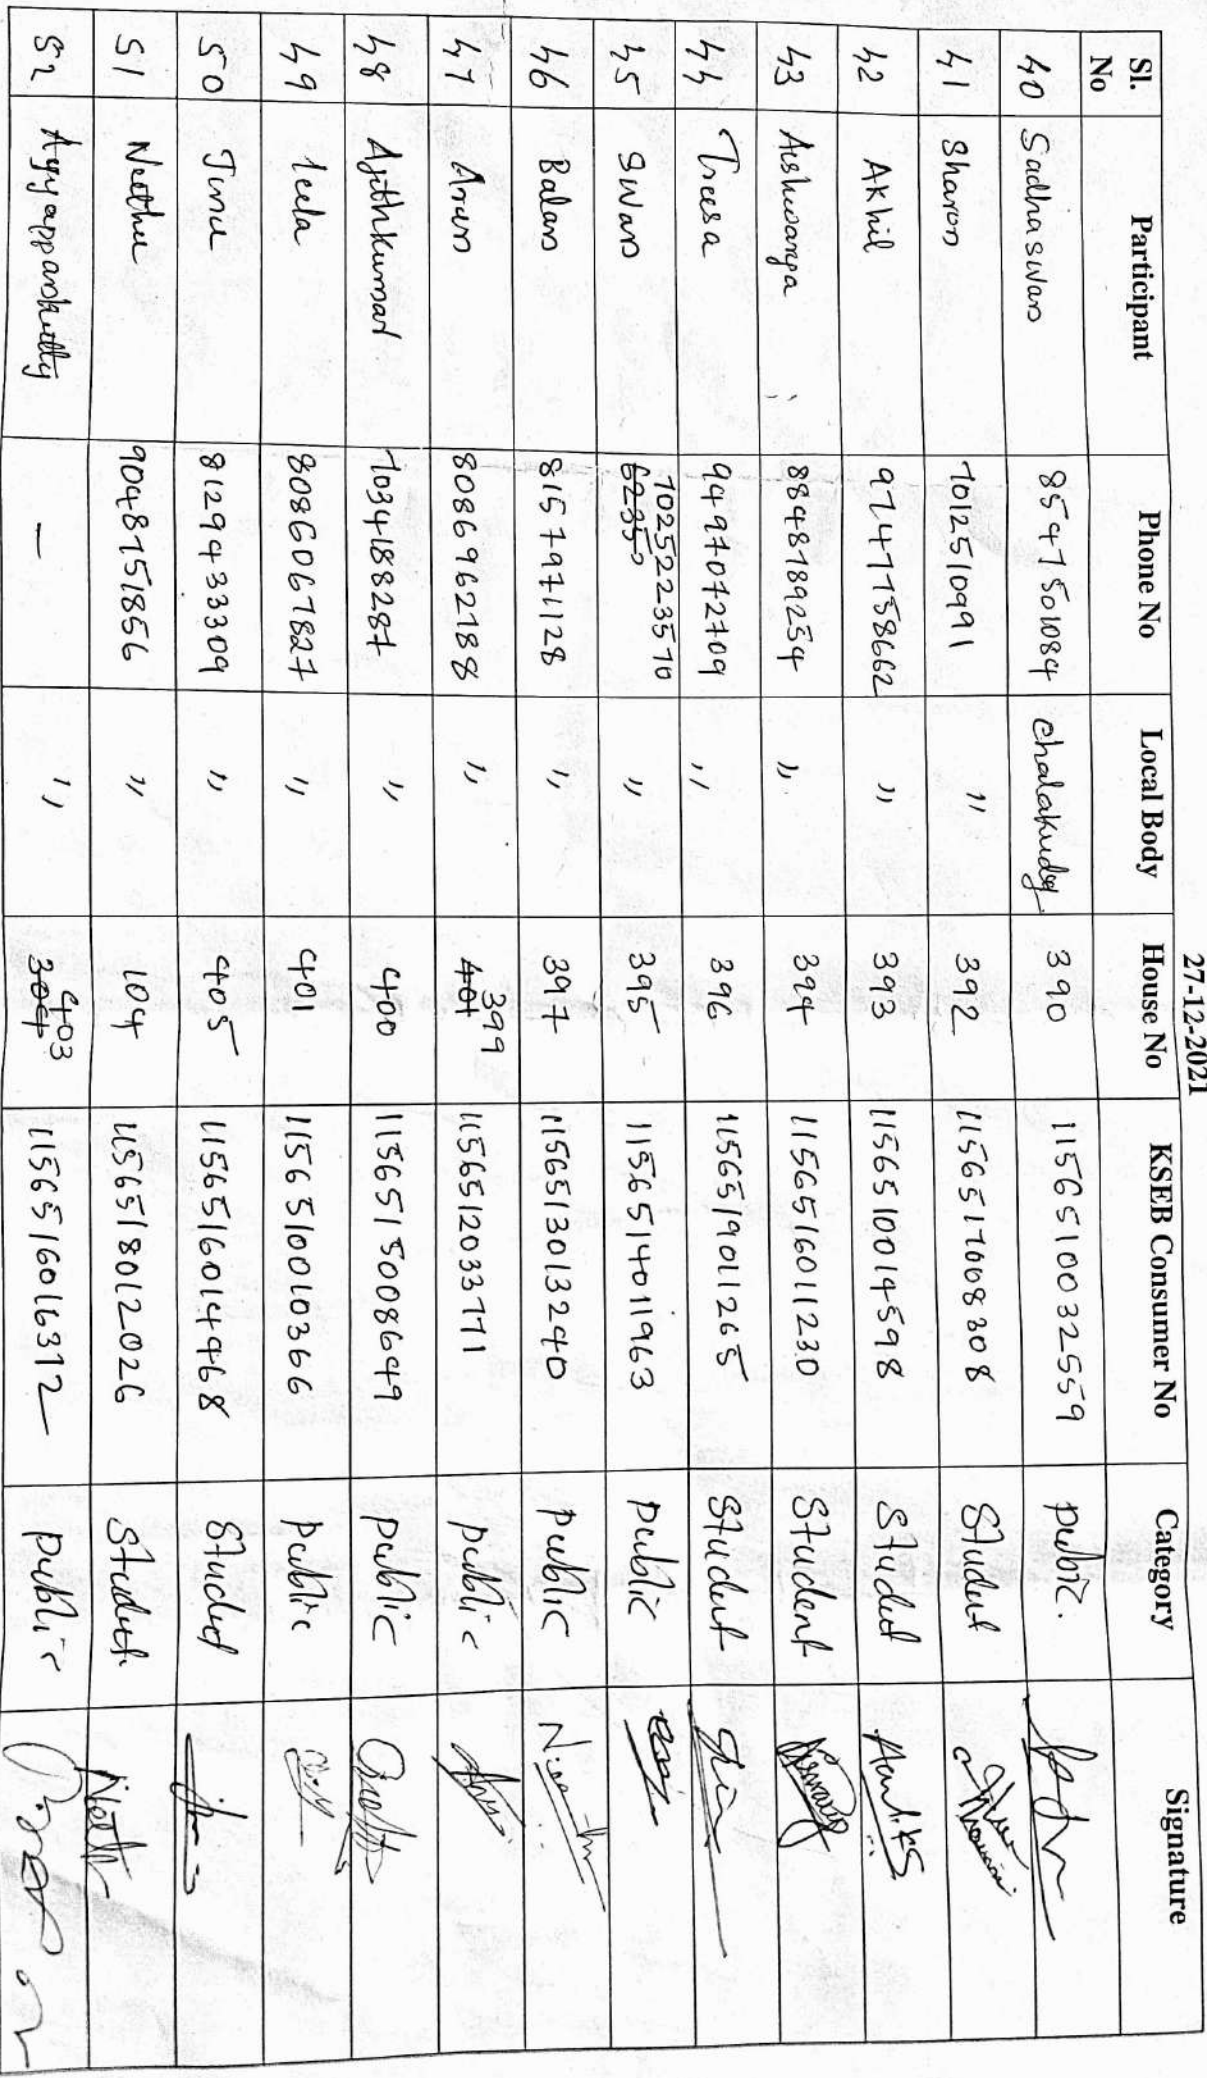 27-12-2021
Sl. No Participant Phone No Local Body House No KSEB Consumer No Category Signature
40 Sadhasivan 8547501084 Chalakudy 390 1156510032559 public.
41 Sharon 7012510991 " 392 1156517008308 Student
42 Akhil 9747758662 " 393 1156510014598 Student
43 Aishwarya 8848789254 " 394 1156516011230 Student
44 Treesa 9497072709 " 396 1156519011265 Student
45 Sivan 62350 7025223570 " 395 1156514011963 public
46 Balan 8157971128 " 397 1156513013240 public
47 Arun 8086962788 " 401 399 1156512033771 public
48 Ajithkumar 7034188287 " 400 1156515008649 public
49 leela 8086067827 " 401 1156510010366 public
50 Jinu 8129433309 " 405 1156516014468 Student
51 Neethu 9048751856 " 104 1156518012026 Student Neethu
52 Ayyappankutty - " 403 1156516016372 public